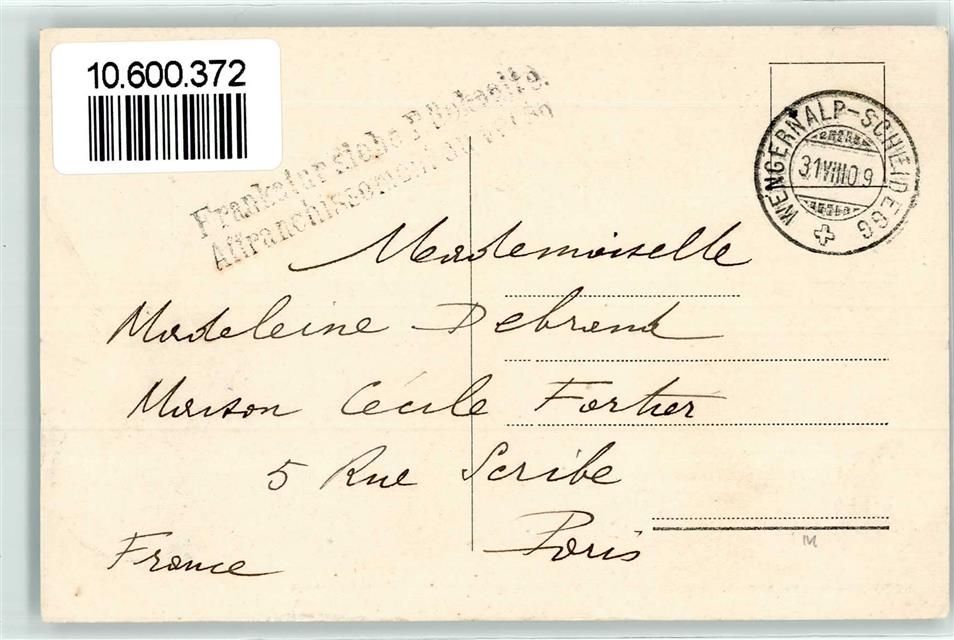 10.600.372
Frankatur siehe Rückseite.
Affranchissement au verso
WENGERNALP-SCHEIDEGG
31 VIII 09
Mademoiselle
Madeleine Debrand
Maison Cécile Fortier
5 Rue Scribe
Paris
France